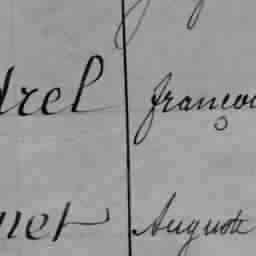 drel françoi
net Auguste